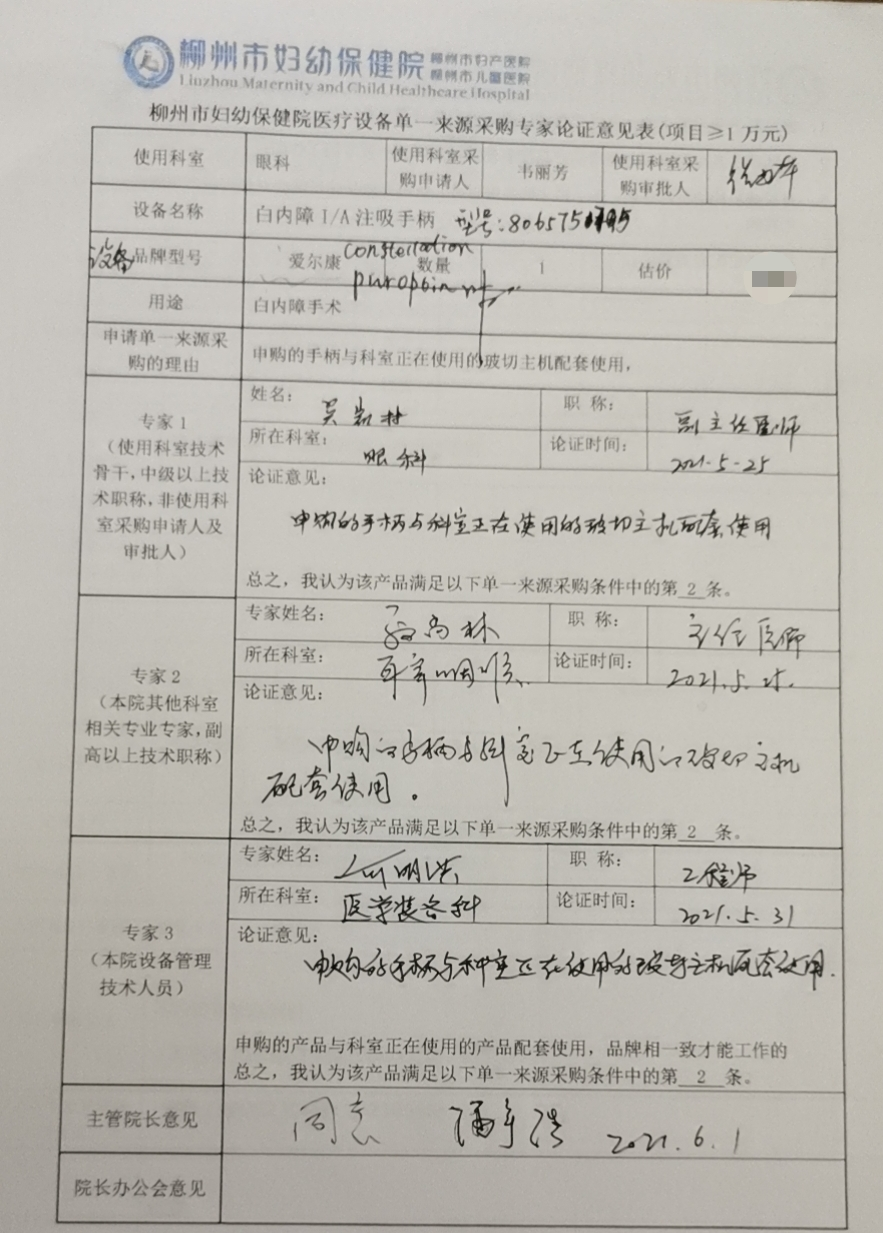 柳州市妇幼保健院 柳州市妇产医院
柳州市儿童医院
Liuzhou Maternity and Child Healthcare Hospital
柳州市妇幼保健院医疗设备单一来源采购专家论证意见表(项目≥1万元)
使用科室 眼科 使用科室采购申请人 韦丽芳 使用科室采购审批人
设备名称 白内障I/A注吸手柄 型号:
设备品牌型号 爱尔康 constellation 数量 1 估价
用途 白内障手术
申请单一来源采购的理由 申购的手柄与科室正在使用的玻切主机配套使用,
专家1
(使用科室技术
骨干,中级以上技
术职称,非使用科
室采购申请人及
审批人)
姓名: 职 称: 副主任医师
所在科室: 眼科 论证时间: 2021.5-25
论证意见:
申购的手柄与科室正在使用的玻切主机配套使用
总之,我认为该产品满足以下单一来源采购条件中的第 2 条。
专家2
(本院其他科室
相关专业专家,副
高以上技术职称)
专家姓名: 职 称: 主任医师
所在科室: 耳鼻咽喉 论证时间: 2021.5.25.
论证意见:
申购的手柄与科室正在使用的玻切主机
配套使用。
总之,我认为该产品满足以下单一来源采购条件中的第 2 条。
专家3
(本院设备管理
技术人员)
专家姓名: 职 称: 工程师
所在科室: 医学装备科 论证时间: 2021.5.31
论证意见:
申购的手柄与科室正在使用的玻切主机配套使用.
申购的产品与科室正在使用的产品配套使用,品牌相一致才能工作的
总之,我认为该产品满足以下单一来源采购条件中的第 2 条。
主管院长意见 同意 2021.6.1
院长办公会意见